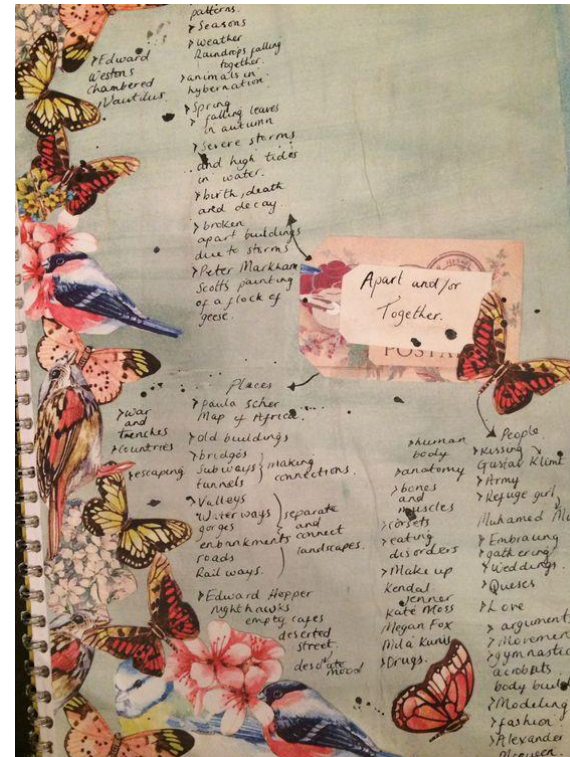 patterns.
> Seasons
> Weather
Raindrops falling
together.
> animals in
hybernation.
> Spring
> falling leaves
in autumn
> Severe storms
and high tides
in water.
> birth, death
and decay.
> broken
apart buildings
due to storms
> Peter Markham
Scotts painting
of a flock of
geese.
> Edward
Westons
chambered
Nautilus.
Apart and/or
Together.
POSTA
Places
> paula scher
Map of Africa.
> old buildings
> bridges
Subways
tunnels
making
connections.
> Valleys
Water ways
gorges
enbankments
roads
Rail ways.
separate
and
connect
landscapes.
> Edward Hopper
nighthawks
empty cafes
deserted
street.
desolate
mood
> war
and
trenches
> countries
> escaping
> human
body
> anatomy
> bones
and
muscles
> corsets
> eating
disorders
> Make up
Kendal
Jenner
Kate Moss
Megan Fox
Mila Kunis
> Drugs.
People.
> Kissing
Gustav Klimt
> Army
> Refuge girl
Muhamed
> Embracing
> gathering
> Weddings.
> Queses
> Love
> argument
> Movemen
> gymnastic
acrobats
body buil
> Modeling
> fashion
> Alexander
Mcqueen.